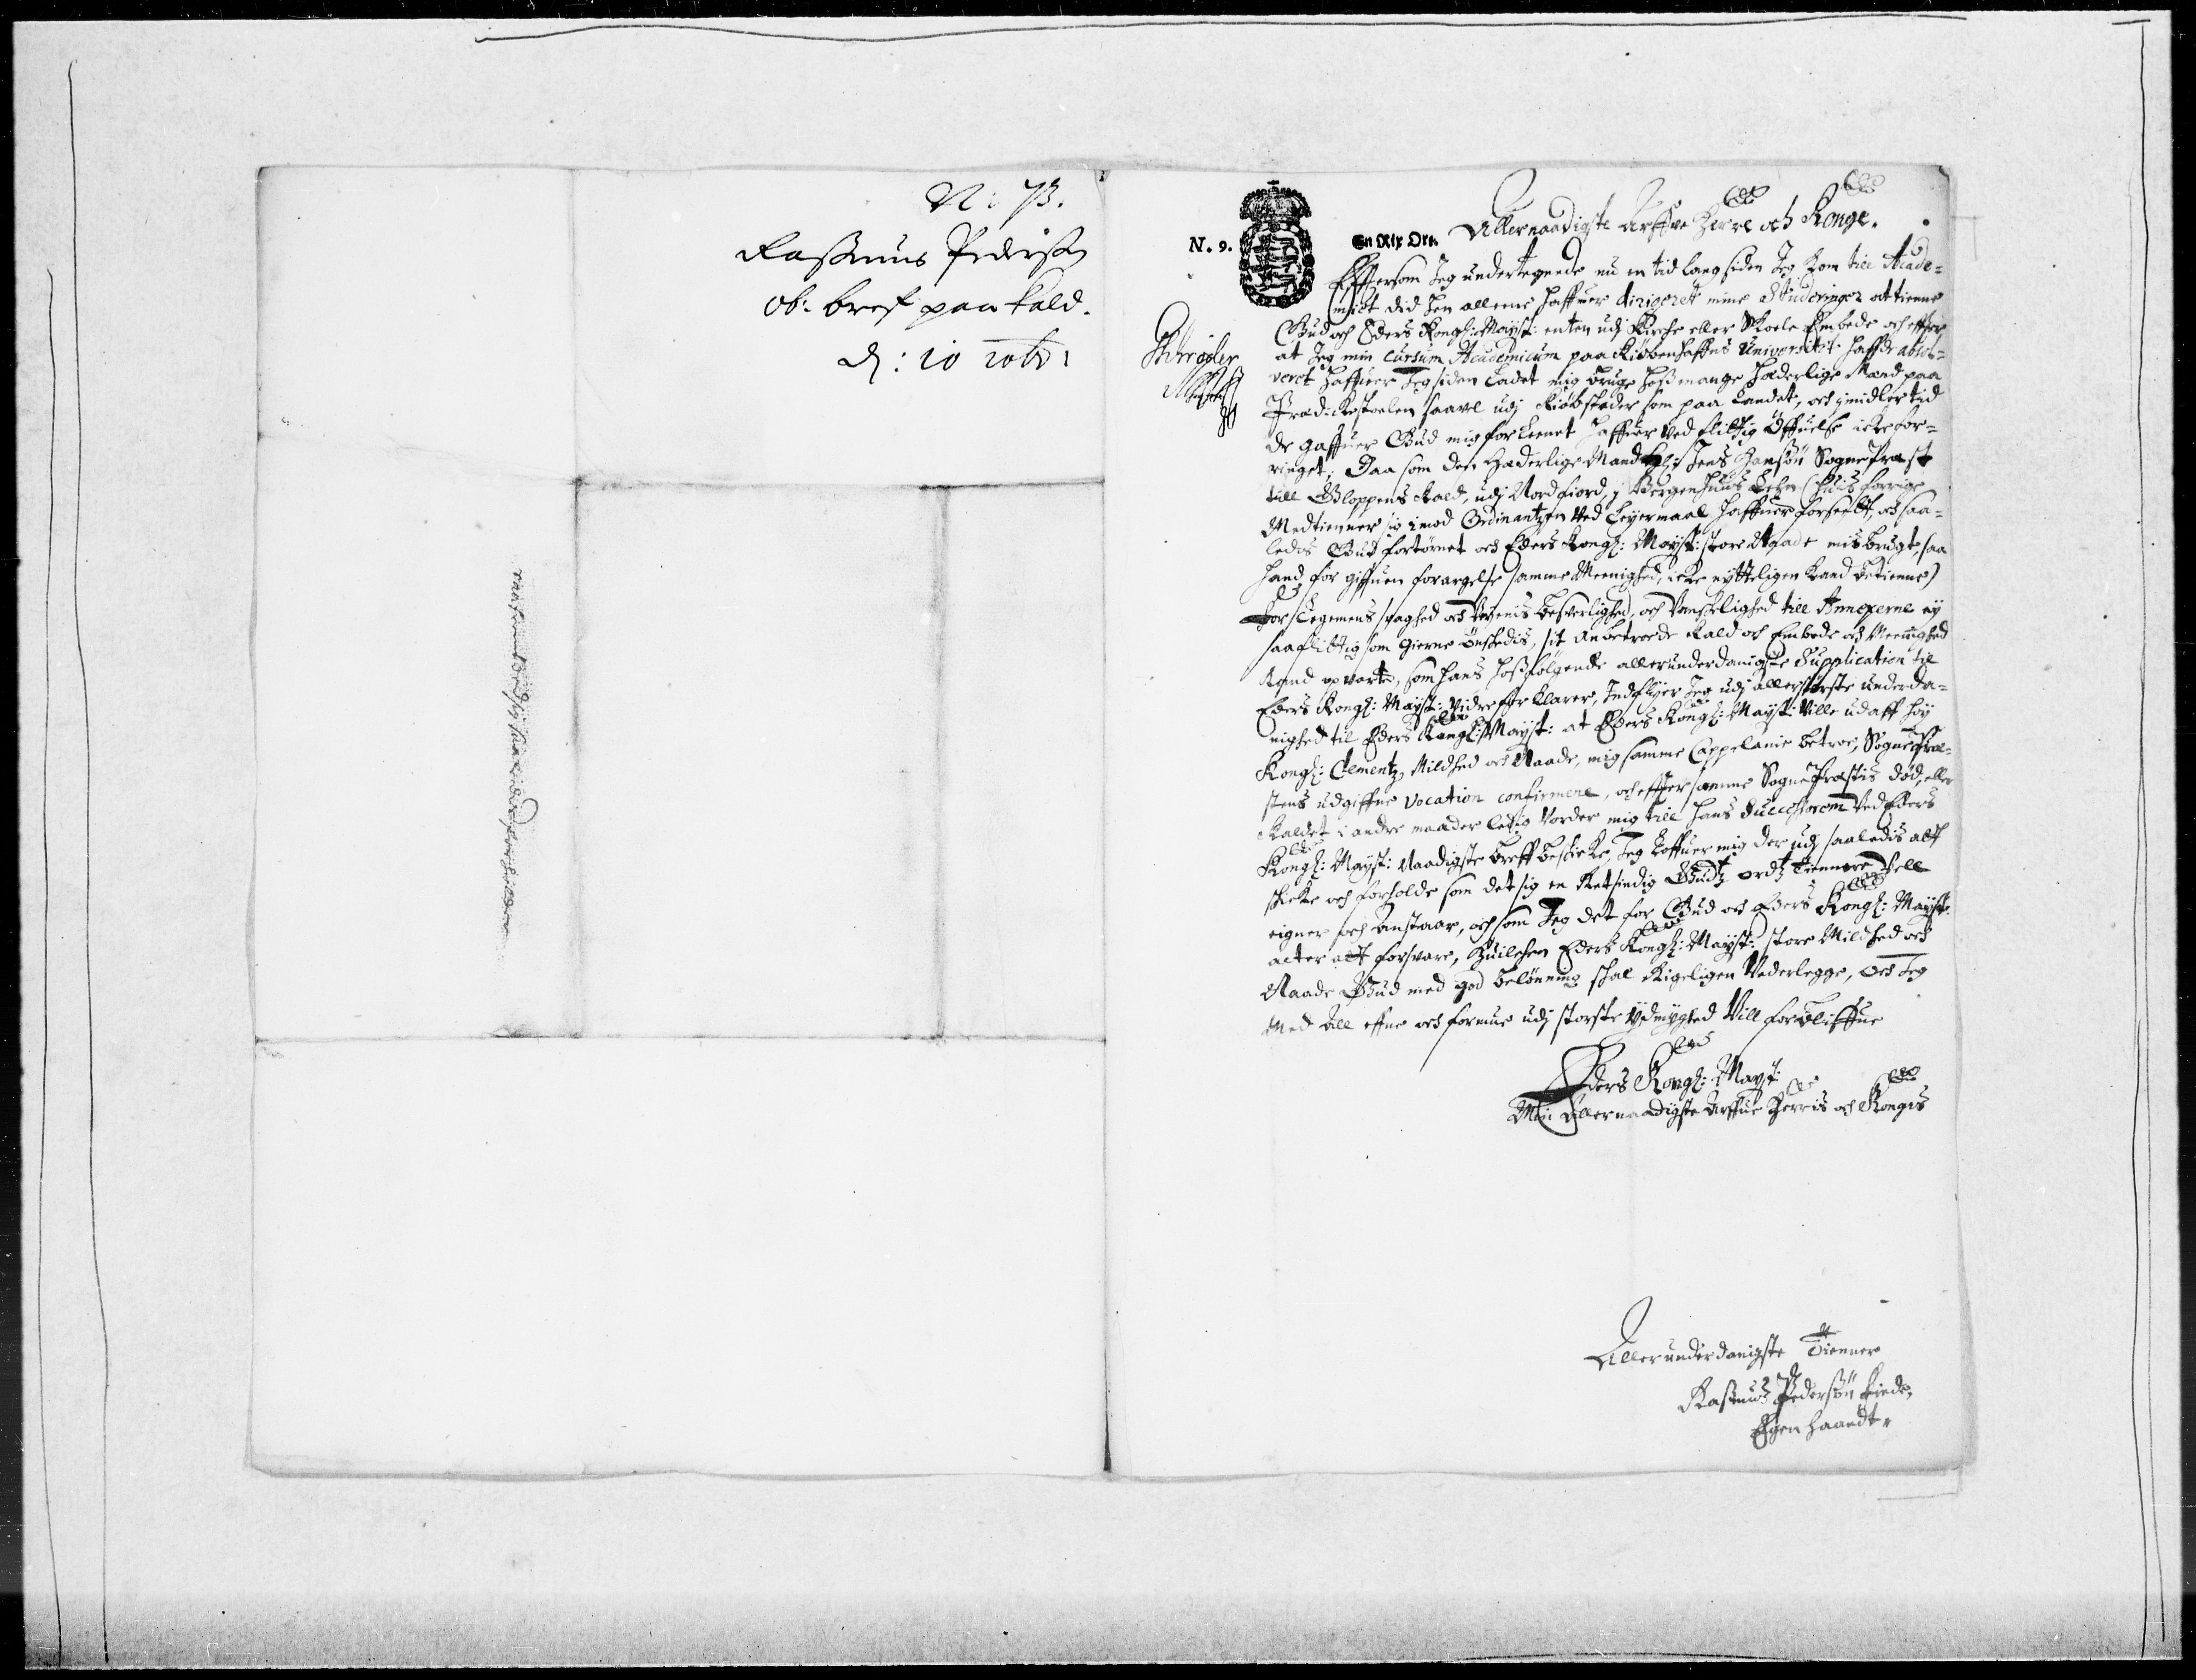 N: 73.
Rasmus Pederss
ob: bref paa kald.
d: 10 10br:
N. 9.
En Rix Ort.
Allernaadigste Arffve Herre och Konge.
Efftersom Jeg undertegnede nu en tid lang siden Jeg kom till Acade-
miet did hen alleene haffuer dirigeret mine Studeringer at tienne
Gud och Eders Kongl: Mayst: enten udj Kirche eller Skoele Embede och effter
at Jeg min Cursum Academicum paa Kiøbenhaffns Universitet haffde absol-
veret haffuer Jeg siden ladet mig bruge hoss mange Hæderlige Mænd paa
Prædickestoelen saavel udj Kiøbsteder som paa Landet, och imidlertid
de gaffuer Gud mig forleenet haffuer ved flittig Öffuelse icke for-
ringet; Daa som den Hæderlige Mand Hr: Jens Hansøn SognePræst
till Gloppens Kald, udj Nordfiord, j Bergenhuus Lehn (huis forrige
Medtienner sig imod Ordinantzen ved Leyermaal haffuer forseet, och saa-
ledes Gud fortørnet och Eders Kongl: Mayst: store Naade misbrugt, saa
hand for giffuen forargelse samme Meenighed, icke nytteligen kand betienne)
For Legemens svaghed och Veyenis besverlighed, och vanskelighed till Annexerne ey
saa flittig som gierne ønskedis, sit anbetroede Kald och Embede och Meenighed
kand opvarte, som hans hossfølgende allerunderdanigste Supplication til
Eders Kongl: Mayst: Videre forklarer, Indflyer Jeg udj allerstørste underda-
nighed til Eders Kongl: Mayst: at Eders Kongl: Mayst: Ville udaff høy
Kongl: Clementz, Mildhed och Naade, mig samme Cappelanie betroe, SognePræ-
stens udgiffne Vocation confirmere, och effter samme SognePræstis død, eller
Kaldet i andre maader ledig vorder mig till hans Successorem Ved Eders
Kongl: Mayst: Naadigste breff beskicke, Jeg loffuer mig der udj saaledis alt
skicke och forholde som det sig en Retsindig Gudtz ordtz Tiennere Vell
eigner och anstaar, och som Jeg det for Gud och Eders Kongl: Mayst:
acter att forsvare, Huilchen Eders Kongl: Mayst: store Mildhed och
Naade Gud med god belønning skal Rigeligen Vederlegge, och Jeg
Med all effne och formue udj største Ydmyghed Vill forbliffue
Eders Kongl: Mayst:
Min Allernaadigste Arffue Herris och Kongis
Allerunderdanigste Tienner
Rasmus Pedersøn
Egen haandt